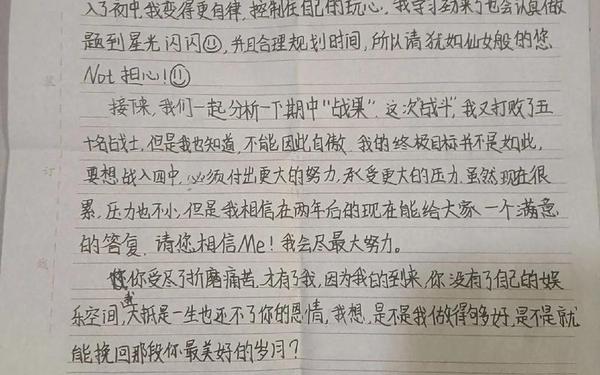 入了初中,我变得更自律,控制住自己的玩心,我学习劲来了也会认真做
题到星光闪闪,并且合理规划时间,所以请犹如仙女般的您
Not 担心!
接下来,我们一起分析一下期中"战果",这次"战斗",我又打败了五
十名战士,但是我也知道,不能因此自傲.我的终极目标并不是如此,
要想战入四中,必须付出更大的努力,承受更大的压力.虽然现在很
累,压力也不小,但是我相信在两年后的现在能给大家一个满意
的答复.请您相信Me!我会尽最大努力。
你受尽了折磨痛苦,才有了我,因为我的到来,你没有了自己的娱
乐空间,大抵是一生也还不了你的恩情,我想,是不是我做得够多好,是不是就
能挽回那段你最美好的岁月?
装
订
线